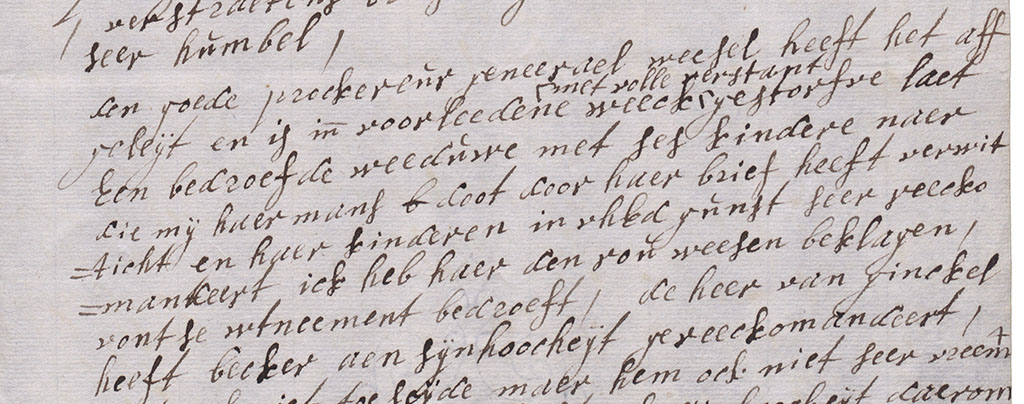 seer humbel,
den goede prockereur geneerael weesel heeft het aff
met volle verstant
geleyt en is in voorleedene weeck gestorfve laet
Een bedroefde weeduwe met ses kindere naer
die mij haer mans doot door haer brief heeft verwit
=ticht en haer kinderen in uhEd gunst seer reecko
=mandeert ick heb haer den rou weesen beklagen,
vont se wtneement bedroeft, de heer van ginckel
heeft becker aen sijn hoocheyt gereeckomandeert,
seyde maer hem ock niet seer vreem
daerom